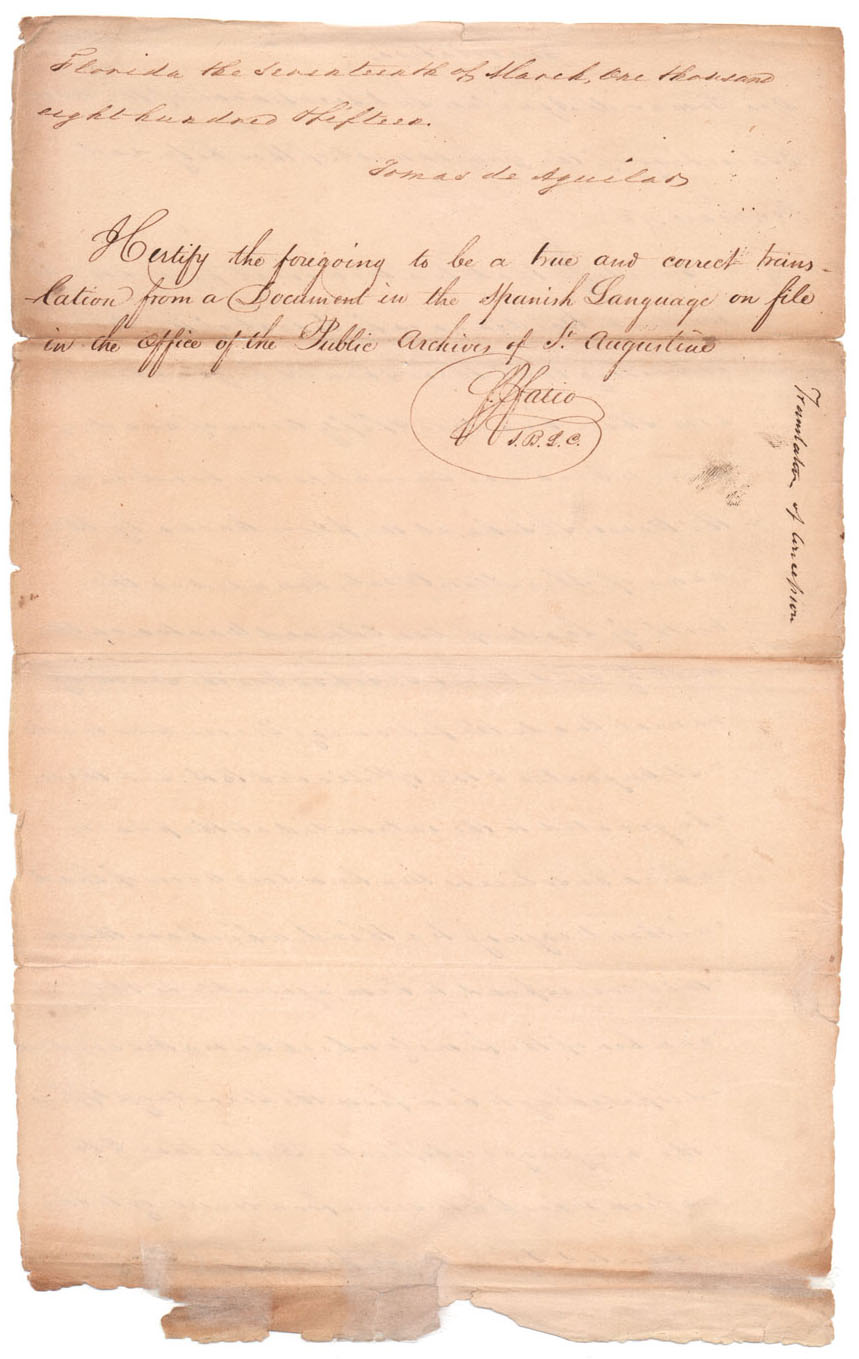 Florida the seventeenth of March, One thousand
eight hundred & fifteen.
Tomas de Aguilar
I Certify the foregoing to be a true and correct trans-
-lation from a Document in the Spanish Language on file
in the office of the Public Archives of St Augustine
F. J. Fatio
S.B.L.C.
Translation of Concession